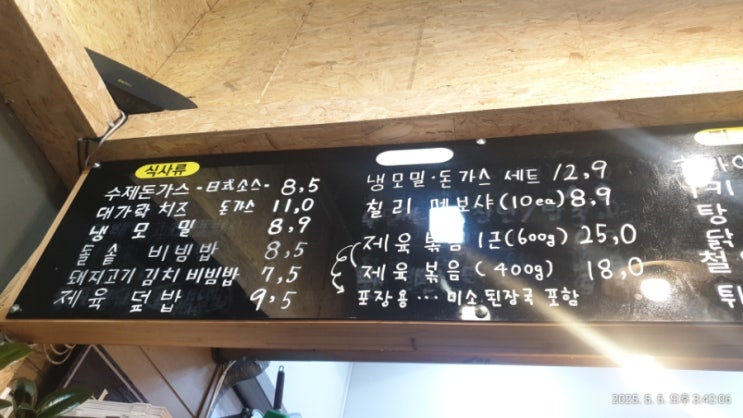 식사류
수제돈가스 -日式소스- 8,5
대가락 치즈 돈가스 11,0
냉모밀 8,9
돌솥 비빔밥 8,5
돼지고기 김치 비빔밥 7,5
제육 덮밥 9,5
냉모밀·돈가스 세트 12,9
칠리 멘보샤(10ea) 8,9
제육볶음 1근(600g) 25,0
제육볶음 (400g) 18,0
포장용··· 미소된장국 포함
탕
닭
철
튀
2025. 5. 5. 오후 3:42:06